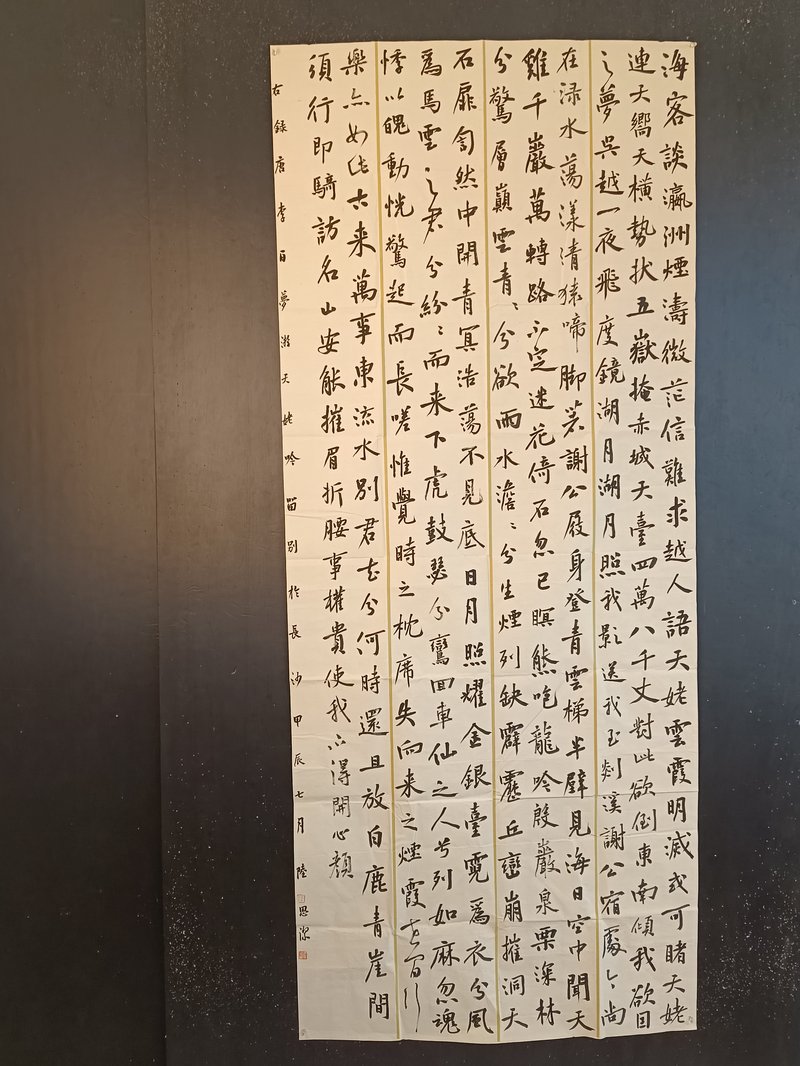 海客談瀛洲煙濤微茫信難求越人語天姥雲霞明滅或可睹天姥
連天嚮天橫勢拔五嶽掩赤城天臺四萬八千丈對此欲倒東南傾我欲因
之夢吳越一夜飛度鏡湖月湖月照我影送我至剡溪謝公宿處今尚
在渌水蕩漾清猿啼腳著謝公屐身登青雲梯半壁見海日空中聞天
雞千巖萬轉路不定迷花倚石忽已暝熊咆龍吟殷巖泉栗深林
兮驚層巔雲青〻兮欲雨水澹〻兮生煙列缺霹靂丘巒崩摧洞天
石扉訇然中開青冥浩蕩不見底日月照耀金銀臺霓爲衣兮風
爲馬雲之君兮紛〻而来下虎鼓瑟兮鸞回車仙之人兮列如麻忽魂
悸以魄動恍驚起而長嗟惟覺時之枕席失向来之煙霞世間行
樂亦如此古来萬事東流水別君去兮何時還且放白鹿青崖間
須行即騎訪名山安能摧眉折腰事權貴使我不得開心顏
右錄唐李白夢游天姥吟留別於長沙甲辰七月陸思